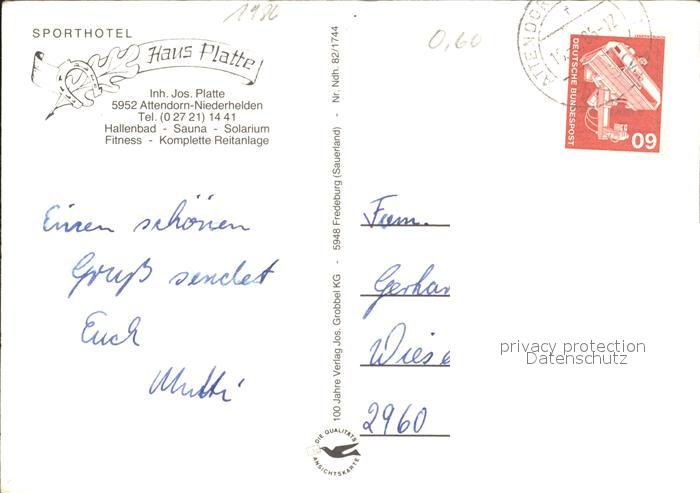 1986
SPORTHOTEL
Haus Platte
Inh. Jos. Platte
5952 Attendorn-Niederhelden
Tel. (0 27 21) 14 41
Hallenbad - Sauna - Solarium
Fitness - Komplette Reitanlage
Einen schönen
Gruß sendet
Euch
Mutti
100 Jahre Verlag Jos. Grobbel KG - 5948 Fredeburg (Sauerland) - Nr. Ndh. 82/1744
DIE QUALITÄTS
ANSICHTSKARTE
0,60
ATTENDOR
DEUTSCHE BUNDESPOST
60
Fam.
Gerhar
Wiese
2960
privacy protection
Datenschutz